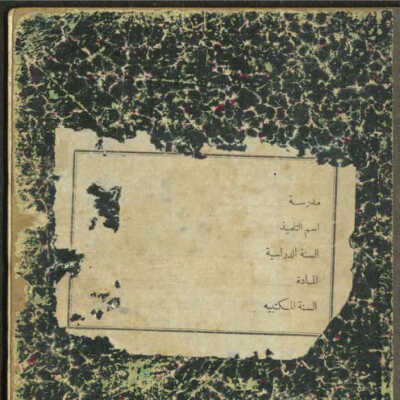 مدرسة
اسم التلميذ
السنة الدراسية
المادة
السنة المكتبيه